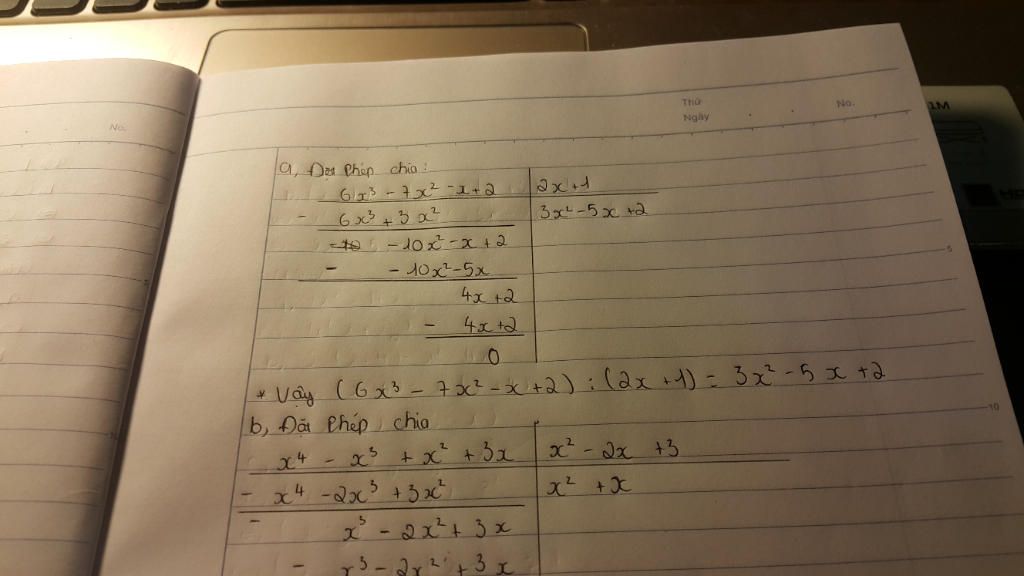 No.
Thứ
Ngày
No.
a, Đặt phép chia:
6x³ - 7x² - x + 2 | 2x + 1
- 6x³ + 3x² | 3x² - 5x + 2
- 10x² - x + 2
- - 10x² - 5x
4x + 2
- 4x + 2
0
* Vậy (6x³ - 7x² - x + 2) : (2x + 1) = 3x² - 5x + 2
b, Đặt phép chia
x⁴ - x³ + x² + 3x | x² - 2x + 3
- x⁴ - 2x³ + 3x² | x² + x
- x³ - 2x² + 3x
- x³ - 2x² + 3x
5
10